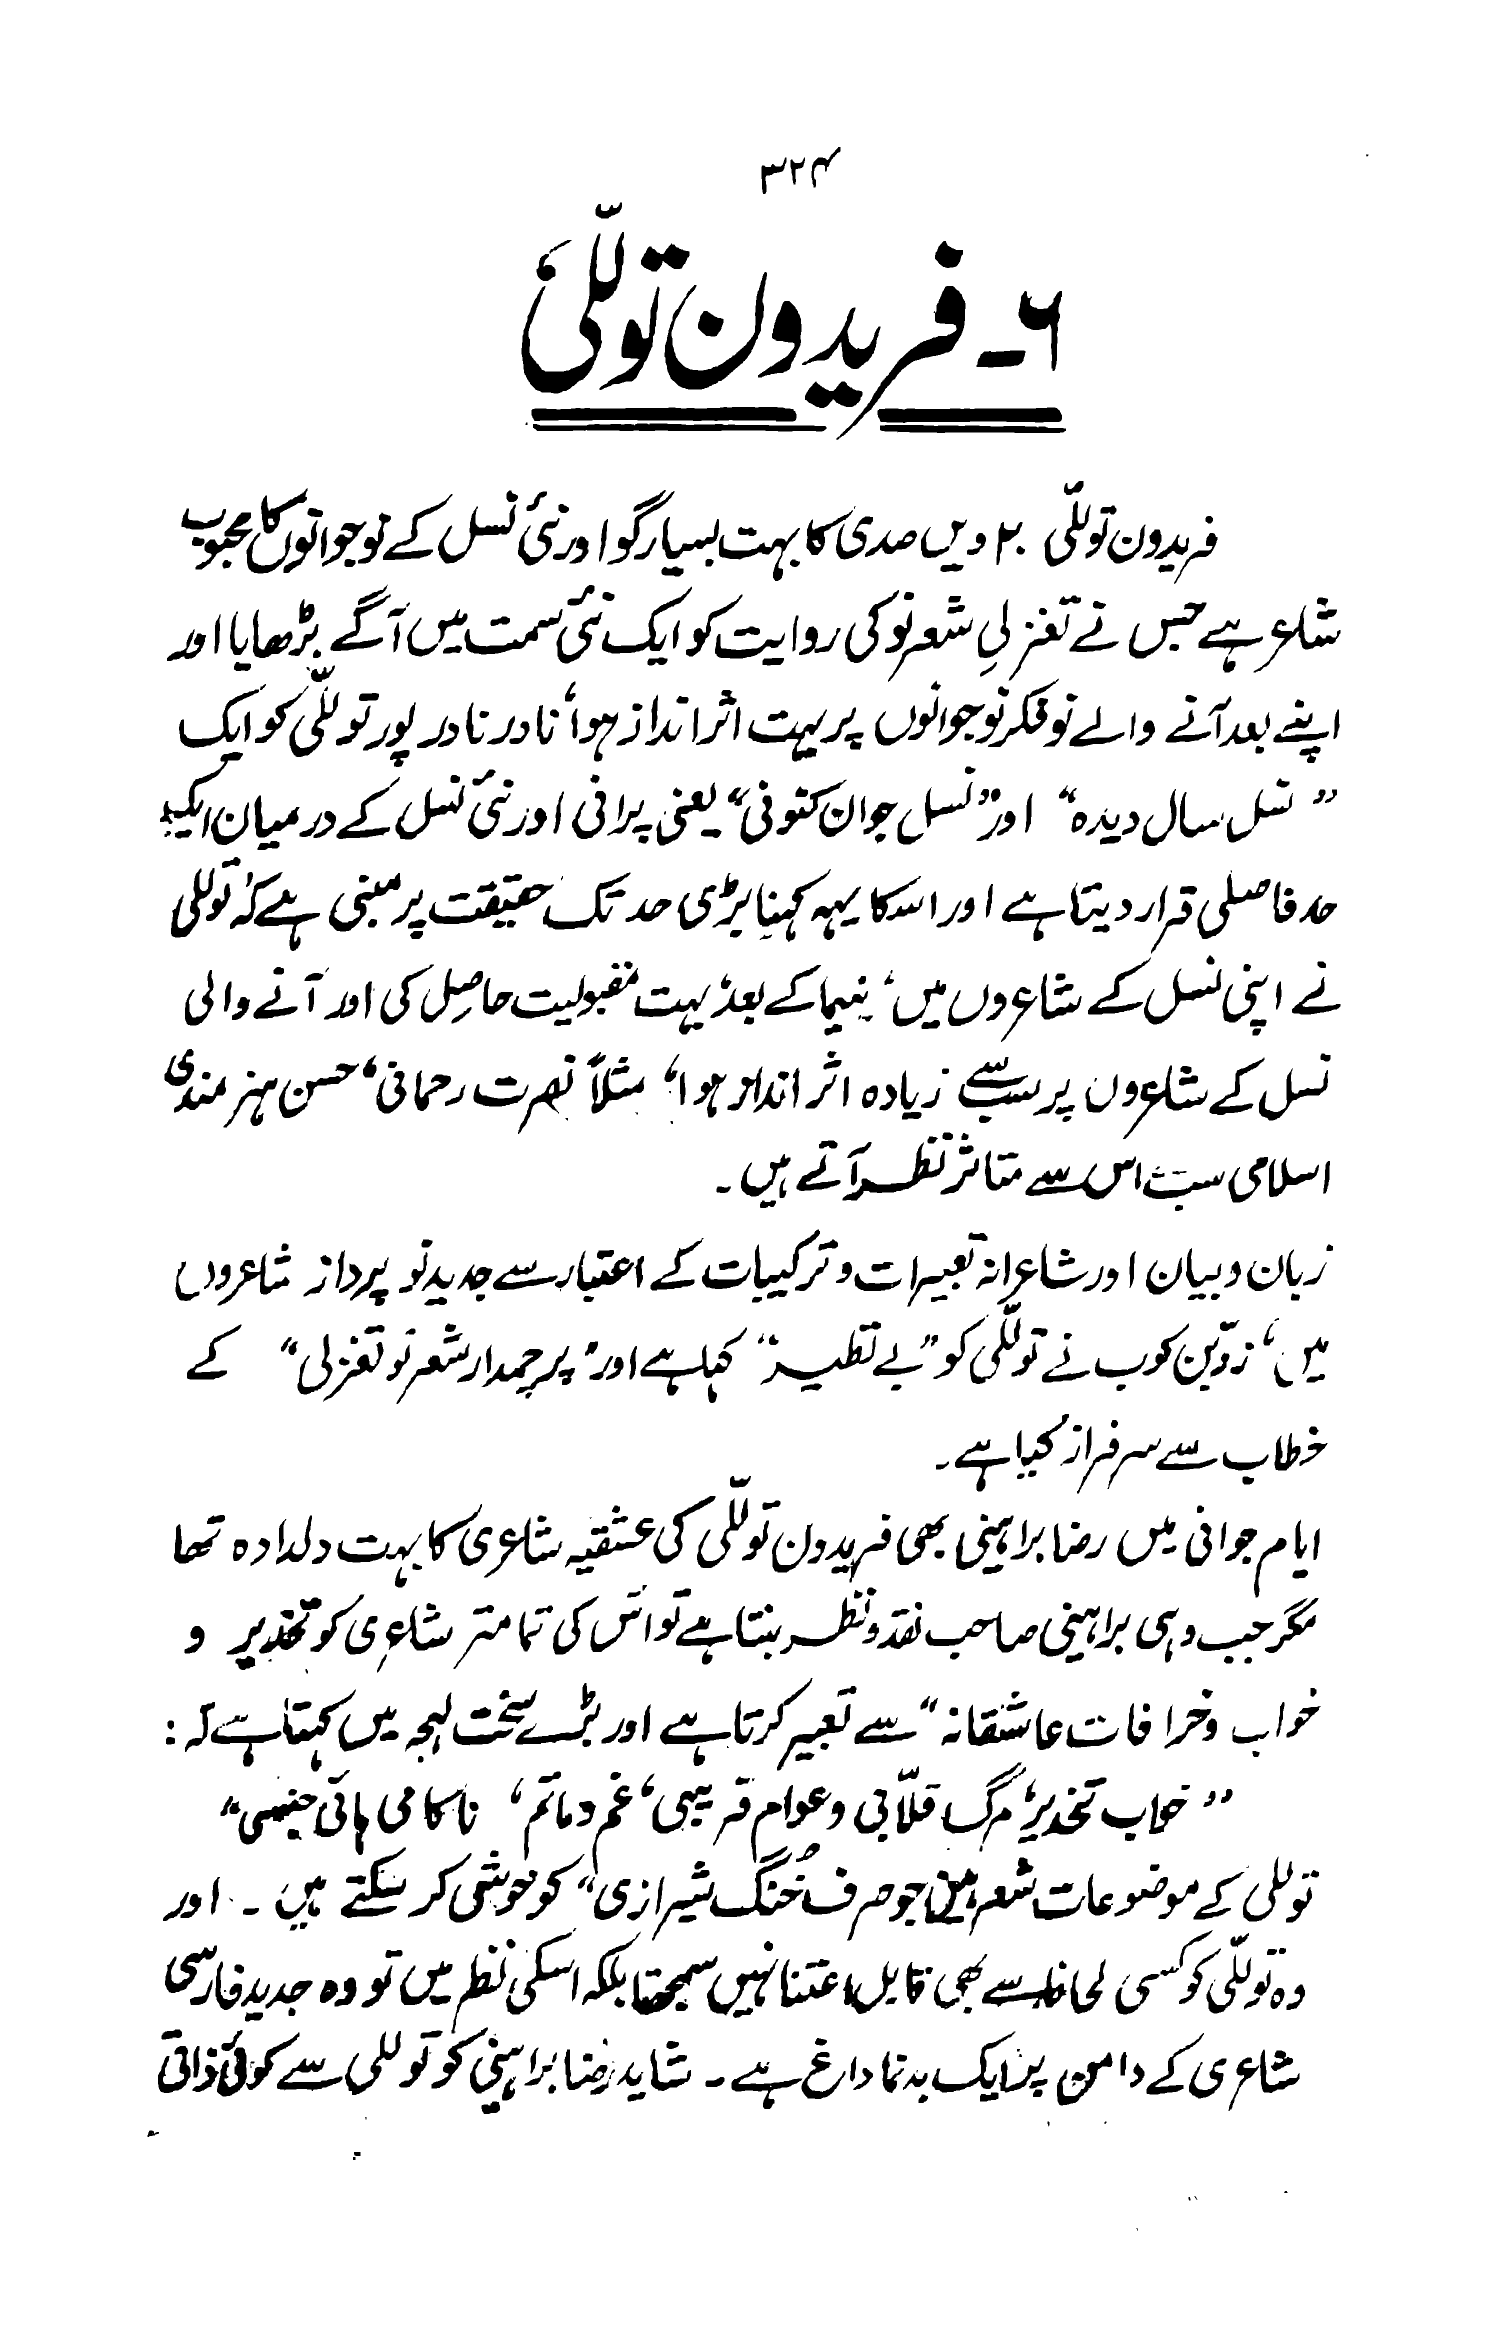 ۳۲۴
۶۔ فریدون توللّیٔ
فریدون توللّی ۲۰ ویں صدی کا بہت بسیار گو اور نئی نسل کے نوجوانوں کا محبوب
شاعر ہے جس نے تغزلیِ شعر نو کی روایت کو ایک نئی سمت میں آگے بڑھایا اور
اپنے بعد آنے والے نو فکر نوجوانوں پر بہت اثر انداز ہوا، نادر نادر پور توللّی کو ایک
”نسل سال دیدہ“ اور ”نسل جوان کنونی“ یعنی پرانی اور نئی نسل کے درمیان ایک
حد فاصلی قرار دیتا ہے اور اس کا یہہ کہنا بڑی حد تک حقیقت پر مبنی ہے کہ توللی
نے اپنی نسل کے شاعروں میں، نیما کے بعد، بہت مقبولیت حاصل کی اور آنے والی
نسل کے شاعروں پر سب سے زیادہ اثر انداز ہوا، مثلاً نصرت رحمانی، حسن ہنر مندی
اسلامی سب اس سے متاثر نظر آتے ہیں۔
زبان و بیان اور شاعرانہ تعبیرات و ترکیبات کے اعتبار سے جدید نو پرداز شاعروں
میں، زرّین کوب نے توللّی کو ”بے نظیر“ کہا ہے اور ”پرچمدار شعر نو تغزلی“ کے
خطاب سے سرفراز کیا ہے۔
ایام جوانی میں رضا براہینی بھی فریدون توللّی کی عشقیہ شاعری کا بہت دلدادہ تھا
مگر جب وہی براہینی صاحب نقد و نظر بنتا ہے تو اس کی تمامتر شاعری کو تخدیر و
خواب و خرافات عاشقانہ“ سے تعبیر کرتا ہے اور بڑے سخت لہجہ میں کہتا ہے کہ:
”خواب تخدیر، مرگ قلّابی و عوام فریبی، غم و ماتم، ناکامی ہائی جنسی“
توللی کے موضوعات شعر ہیں جو صرف ”خُنگ شیرازی“ کو خوش کر سکتے ہیں۔ اور
وہ توللّی کو کسی لحاظ سے بھی قابل اعتنا نہیں سمجھتا بلکہ اسکی نظر میں تو وہ جدید فارسی
شاعری کے دامن پر ایک بدنما داغ ہے۔ شاید رضا براہینی کو توللی سے کوئی ذاتی